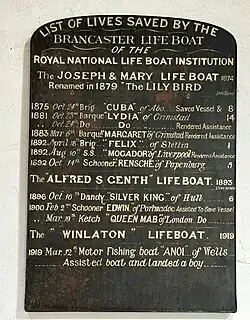 LIST OF LIVES SAVED BY THE
BRANCASTER LIFE BOAT
OF THE
ROYAL NATIONAL LIFE BOAT INSTITUTION
THE JOSEPH & MARY LIFE BOAT 1874
Renamed in 1879 "THE LILY BIRD
1875 Oct 24th Brig "CUBA" of Abo.. Saved Vessel & 8
1881 Oct 23rd Barque "LYDIA" of Grimstad 14
.. Oct 24th Do Do .... Rendered Assistance
1883 Mar 6th Barque MARGARET of Grimstad Rendered Assistance
1892 April 18th Brig "FELIX" of Stettin 1
1892 Aug 10th S.S. "MOGADOR" of Liverpool Rendered Assistance
1892 Oct 14th Schooner "RENSCHE" of Papenburg
THE "ALFRED S. GENTH" LIFEBOAT. 1893
1896 Oct 10th "Dandy" "SILVER KING" of Hull 6
1900 Feb 2nd Schooner "EDWIN" of Portmadoc Assisted To Save Vessel
.. Mar 19th Ketch "QUEEN MAB" of London. Do 5
THE "WINLATON" LIFEBOAT. 1919
1919 Mar 12th Motor Fishing boat "ANOI" of Wells
Assisted boat and landed a boy